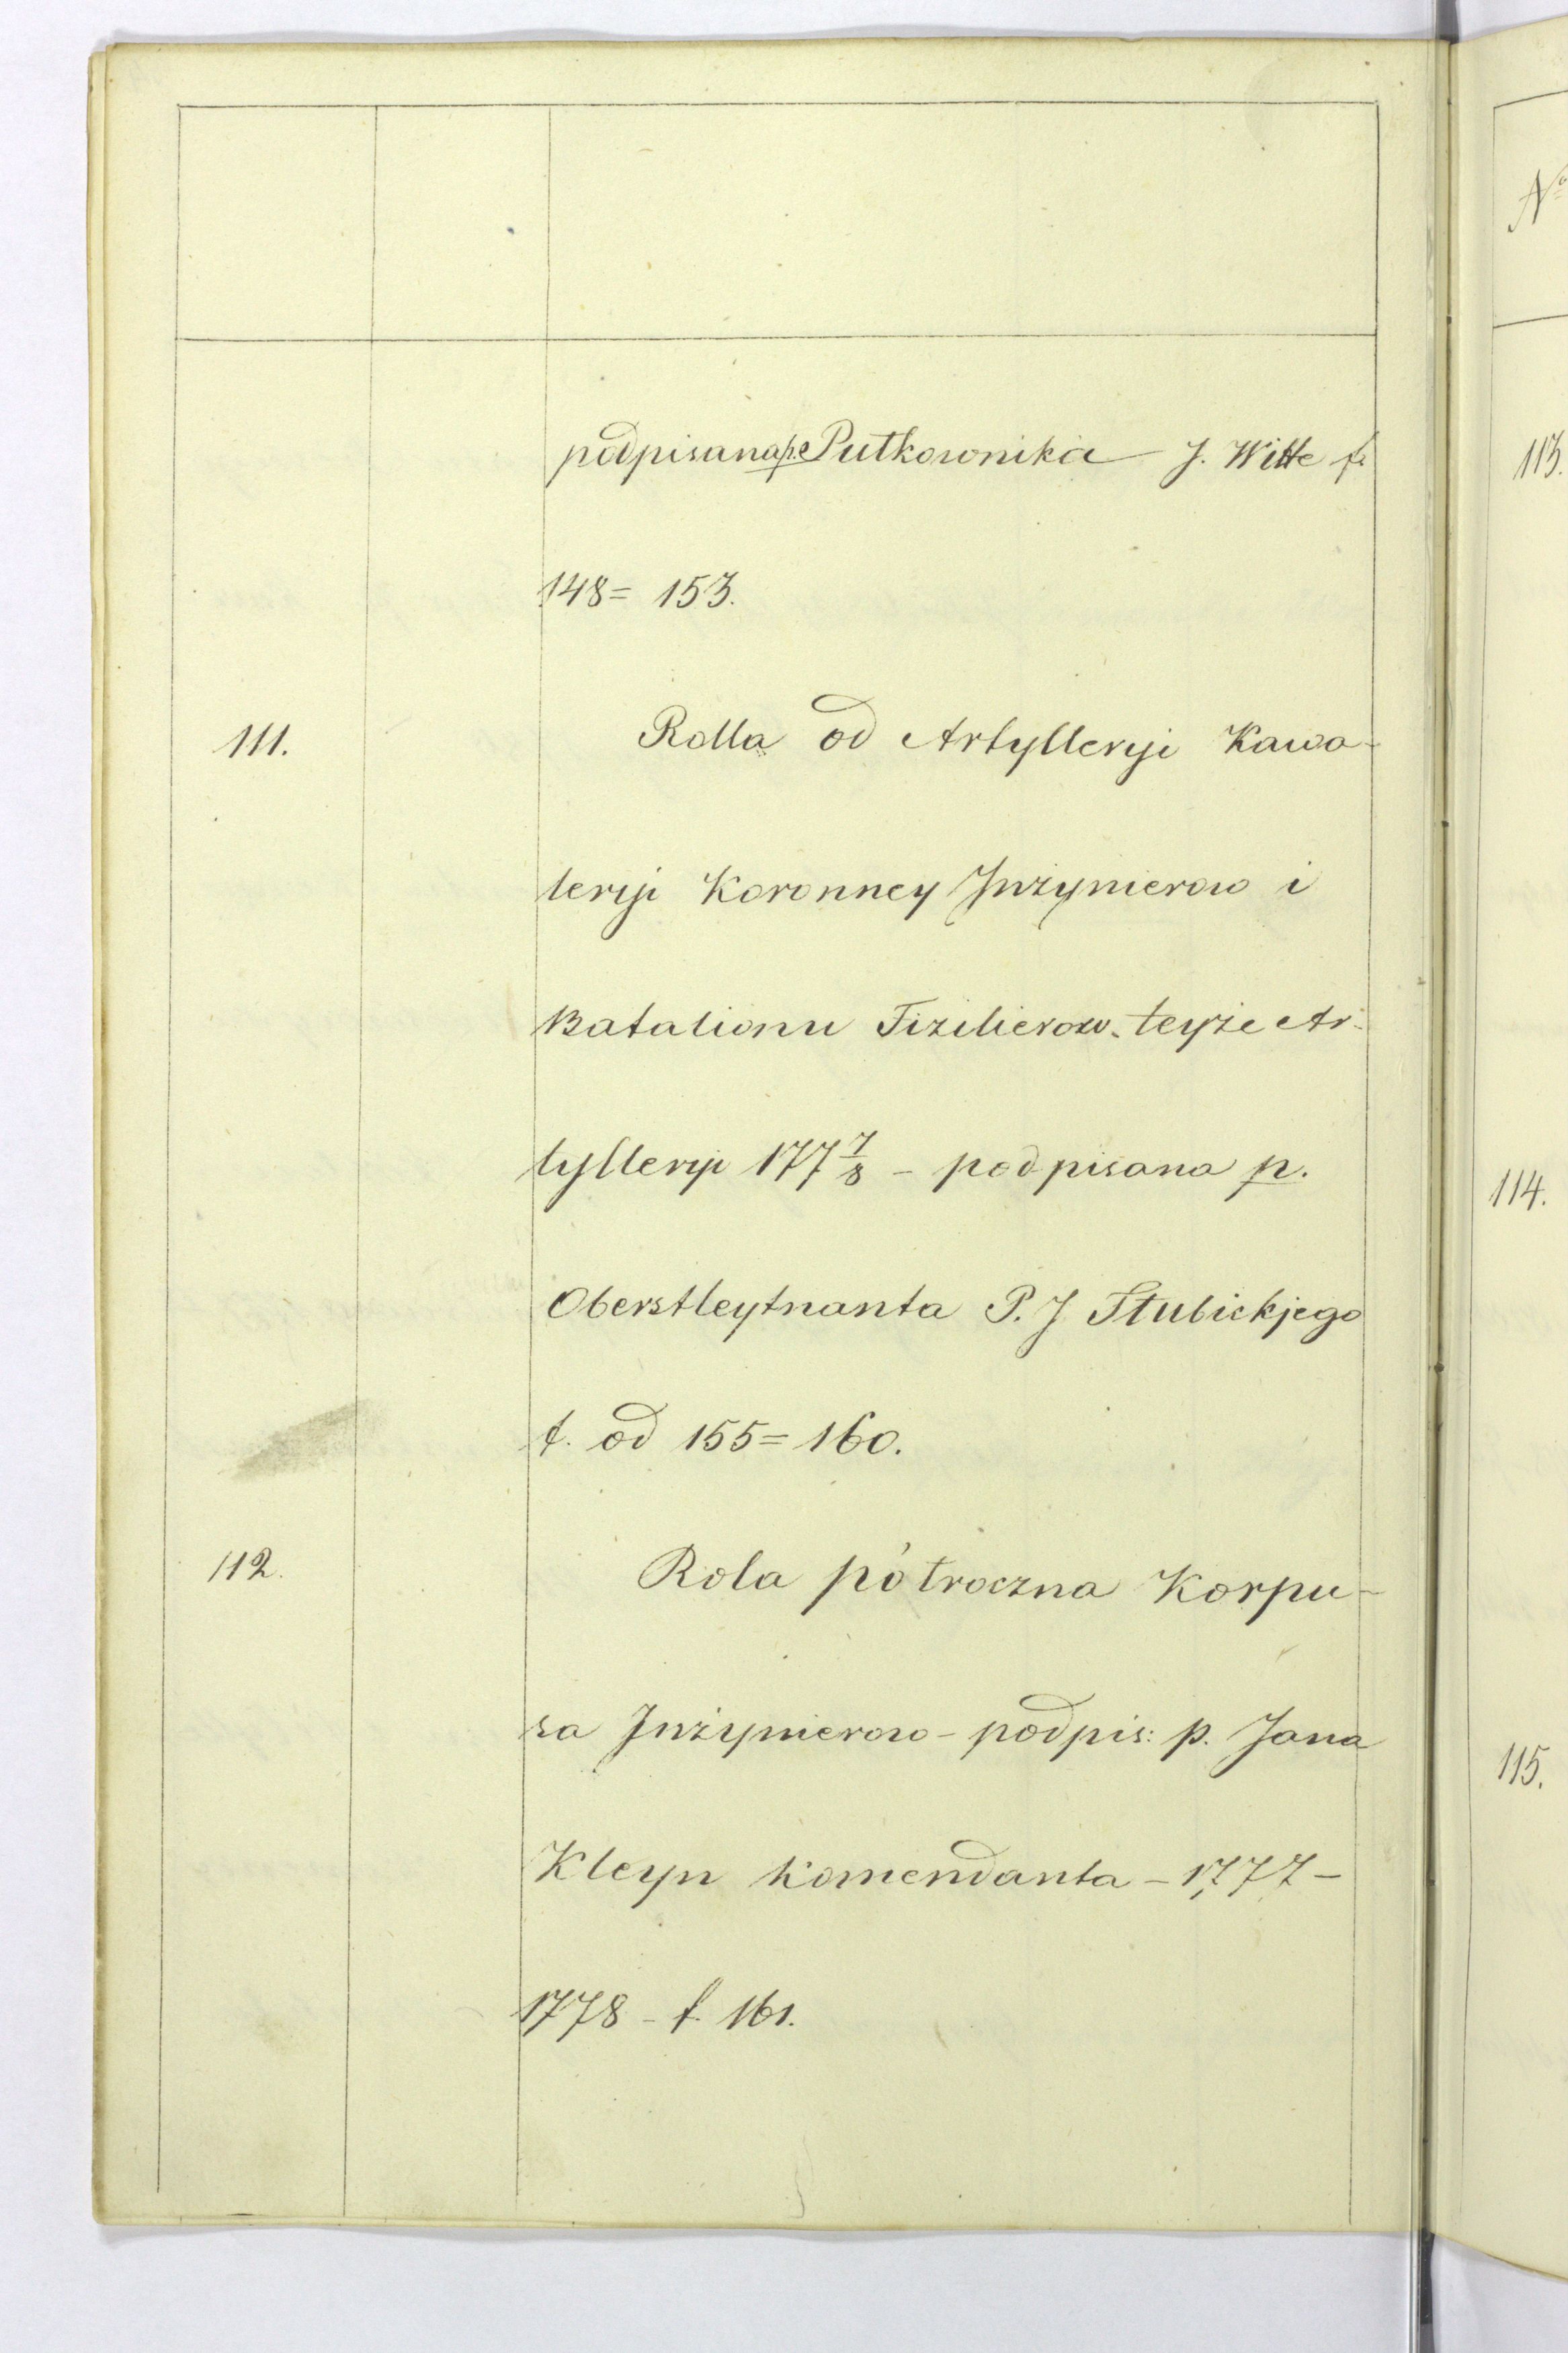 podpisana p.e Pułkownika J. Witte f.
148= 153.
111. Rolla od Artylleryi Kawa-
leryi Koronney Jnżynierow i
Batalionu Fizilierow. teyże Ar-
tylleryi 177 7/8 - podpisana p.
Oberstleytnanta P. J Słubickjego
f. od 155= 160.
112. Rola półroczna Korpu-
sa Jnżynierow - podpis: p. Jana
Kleyn komendanta - 1777 -
1778 - f. 161.
No
113.
114.
115.